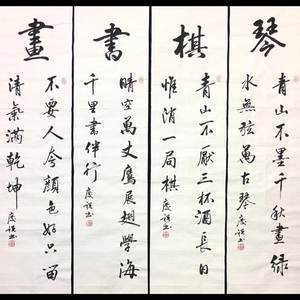 琴
青山不墨千秋畫綠
水無弦萬古琴
棋
青山不厭三杯酒長日
惟消一局棋
書
晴空萬丈鷹展翅學海
千里書伴行
畫
不要人夸顏色好只留
清氣滿乾坤